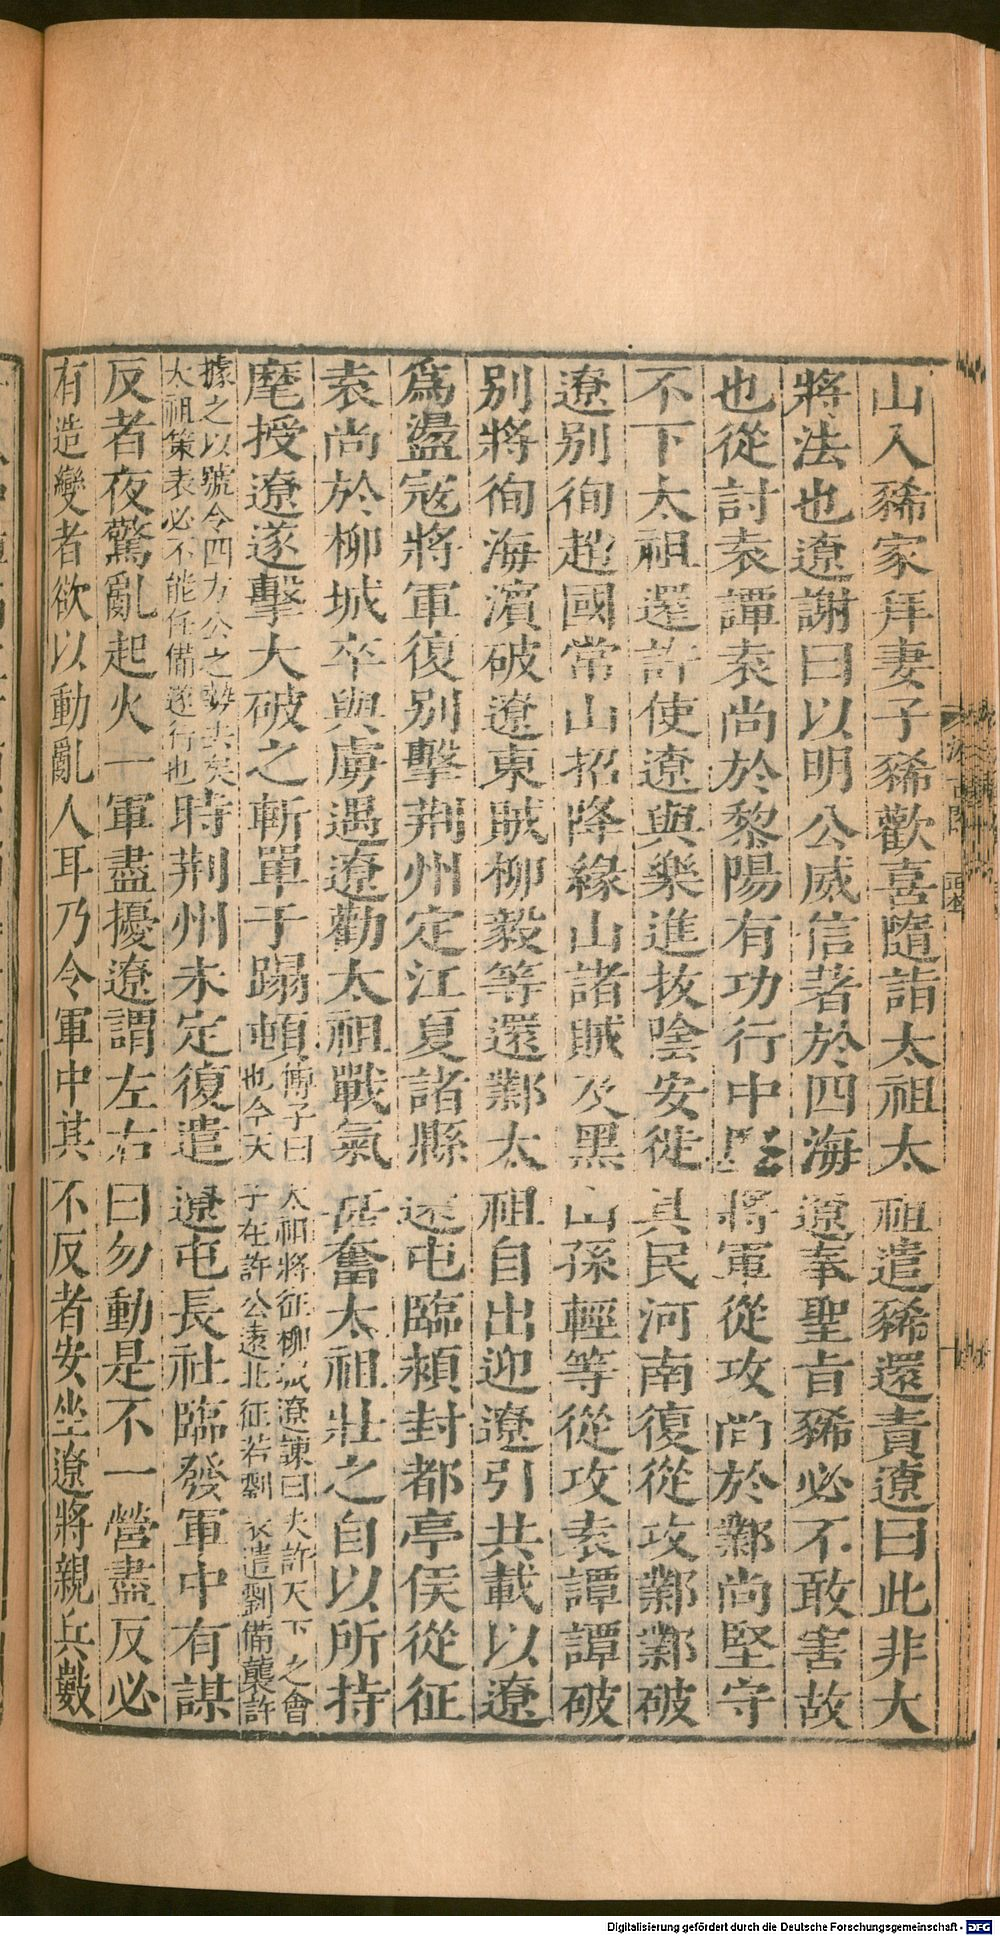 山入豨家拜妻子豨歡喜隨詣太祖太祖遣豨還責遼曰此非大
將法也遼謝曰以明公威信著於四海遼奉聖旨豨必不敢害故
也從討袁譚袁尚於黎陽有功行中將軍從攻尚於鄴尚堅守
不下太祖還許使遼與樂進拔陰安徙其民河南復從攻鄴鄴破
遼别徇趙國常山招降緣山諸賊及黑山孫輕等從攻袁譚譚破
別將徇海濵破遼東賊柳毅等還鄴太祖自出迎遼引共載以遼
爲盪寇將軍復别擊荆州定江夏諸縣還屯臨潁封都亭侯從征
袁尚於柳城卒與虜遇遼勸太祖戰氣甚奮太祖壯之自以所持
麾授遼遂擊大破之斬單于蹋頓傅子曰太祖將征柳城遼諫曰夫許天下之會
也今天子在許公遠北征若劉表遣劉備襲許
據之以號令四方公之勢去矣
太祖策表必不能任備遂行也時荆州未定復遣遼屯長社臨發軍中有謀
反者夜驚亂起火一軍盡擾遼謂左右曰勿動是不一營盡反必
有造變者欲以動亂人耳乃令軍中其不反者安坐遼將親兵數
Digitalisierung gefördert durch die Deutsche Forschungsgemeinschaft - DFG